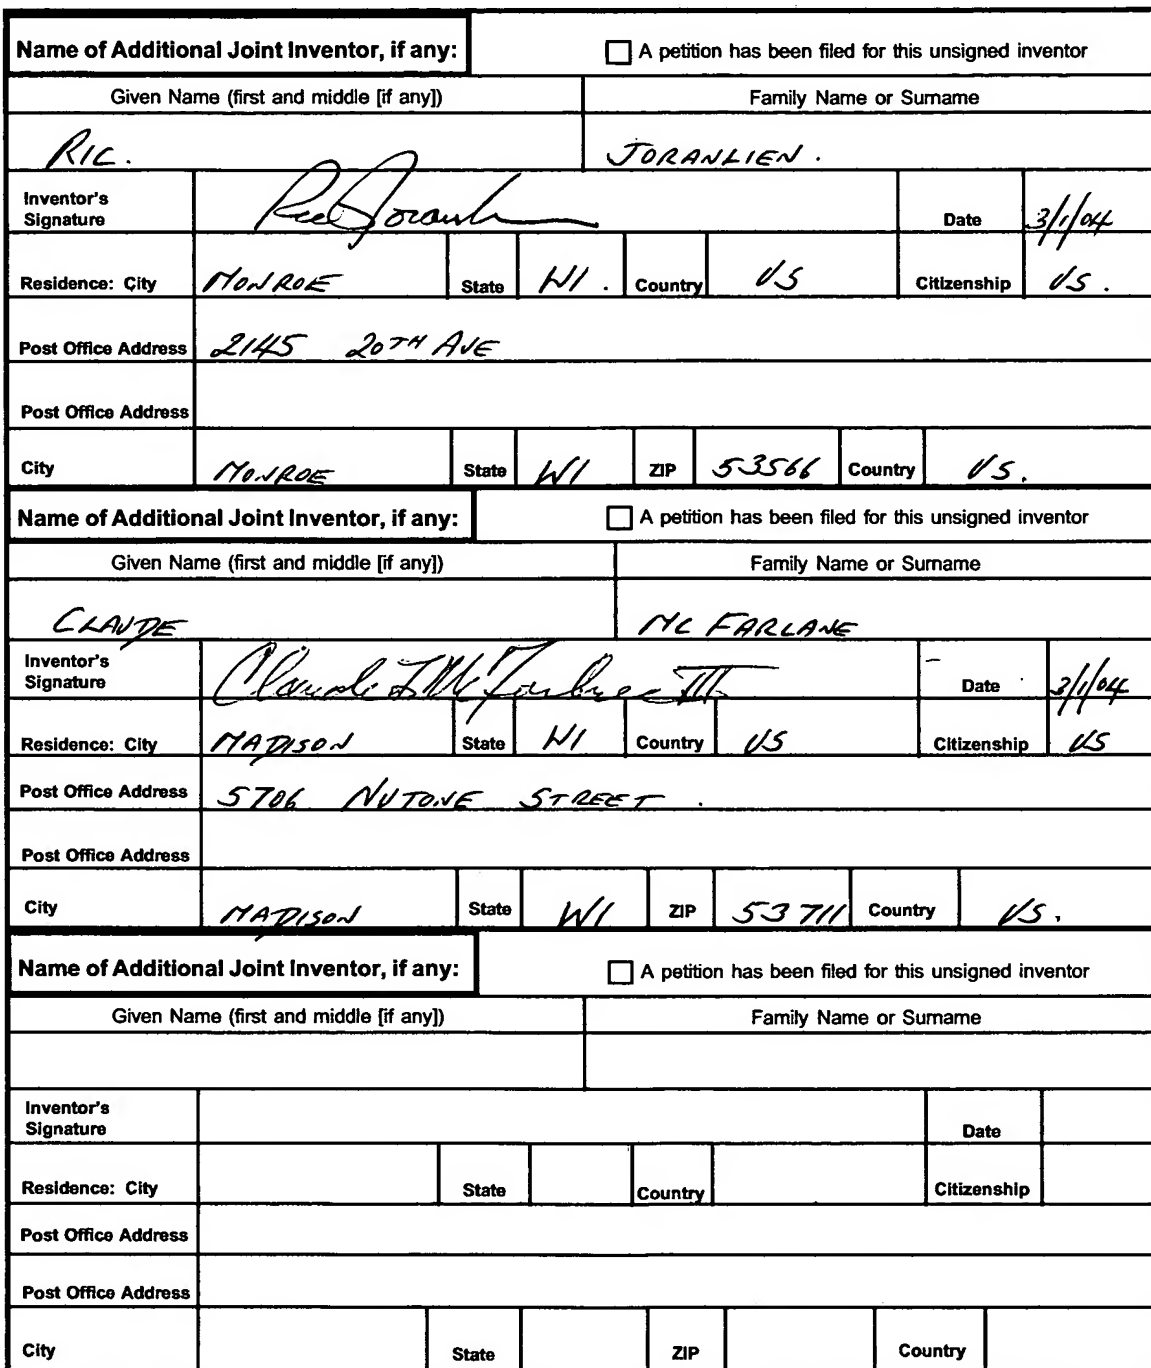 Name of Additional Joint Inventor, if any: A petition has been filed for this unsigned inventor
Given Name (first and middle [if any]) Family Name or Surname
RIC. JORANLIEN.
Inventor's
Signature Date 3/1/04
Residence: City MONROE State WI. Country US Citizenship US.
Post Office Address 2145 20TH AVE
Post Office Address
City MONROE State WI ZIP 53566 Country US.
Name of Additional Joint Inventor, if any: A petition has been filed for this unsigned inventor
Given Name (first and middle [if any]) Family Name or Surname
CLAUDE MC FARLANE
Inventor's
Signature Claude L McFarlane III Date 3/1/04
Residence: City MADISON State WI Country US Citizenship US
Post Office Address 5706 NUTONE STREET.
Post Office Address
City MADISON State WI ZIP 53711 Country US.
Name of Additional Joint Inventor, if any: A petition has been filed for this unsigned inventor
Given Name (first and middle [if any]) Family Name or Surname
Inventor's
Signature Date
Residence: City State Country Citizenship
Post Office Address
Post Office Address
City State ZIP Country